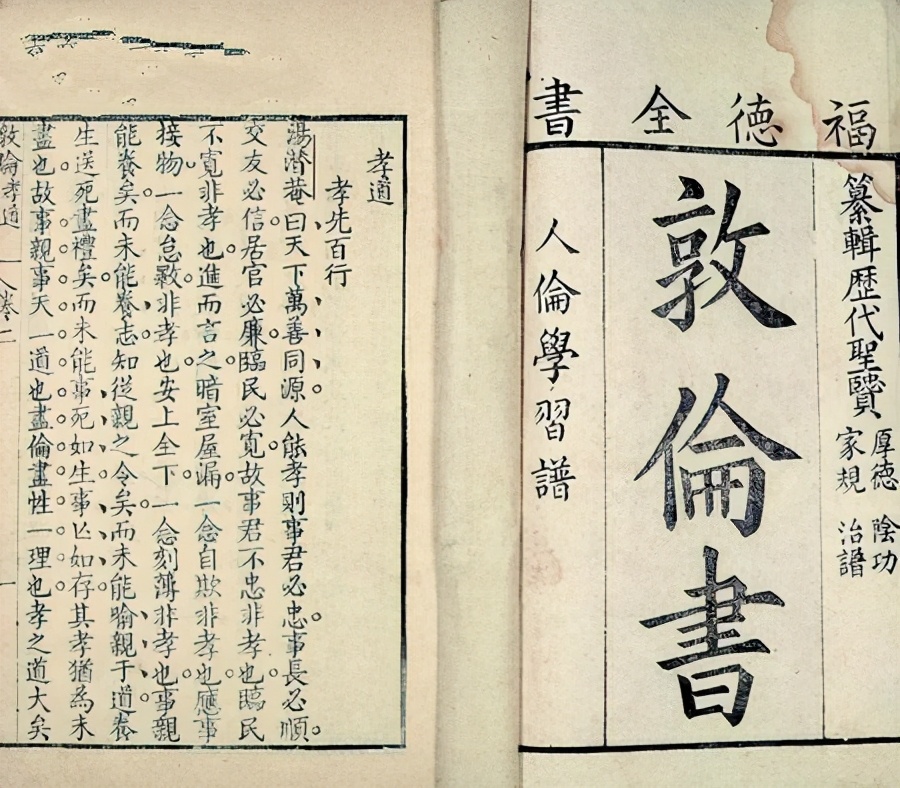 福徳全書
纂輯歴代聖賢
厚德 陰功
家規 治譜
敦倫書
人倫學習譜
孝道
孝先百行
湯潜菴曰天下萬善同源人能孝則事君必忠事長必順
交友必信居官必廉臨民必寬故事君不忠非孝也臨民
不寬非孝也進而言之暗室屋漏一念自欺非孝也應事
接物一念怠斁非孝也安上全下一念刻薄非孝也事親
能養矣而未能養志知從親之令矣而未能喻親于道養
生送死盡禮矣而未能事死如生事亡如存其孝猶為未
盡也故事親事天一道也盡倫盡性一理也孝之道大矣
敦倫孝道 卷二 一